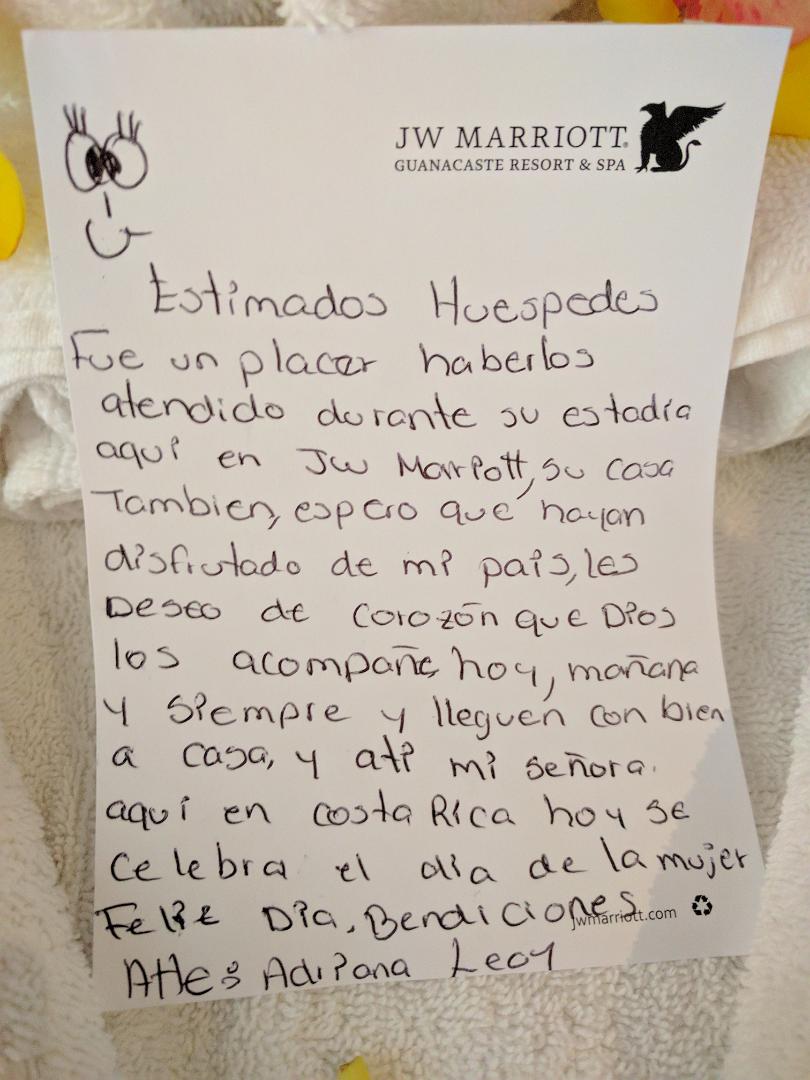 JW MARRIOTT®
GUANACASTE RESORT & SPA
Estimados Huespedes
Fue un placer haberlos
atendido durante su estadía
aquí en JW Marriott, su casa
Tambien, espero que hayan
disfrutado de mi pais, les
Deseo de corozón que Dios
los acompañe hoy, mañana
y siempre y lleguen con bien
a casa, y ati mi señora.
aquí en costa Rica hoy se
celebra el día de la mujer
Feliz Dia, Bendiciones
jwmarriott.com
Adriana